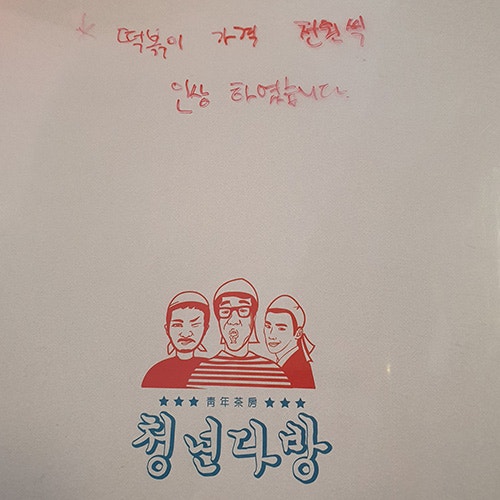 * 떡볶이 가격 천원씩
인상 하였습니다.
★★★ 靑年茶房 ★★★
청년다방